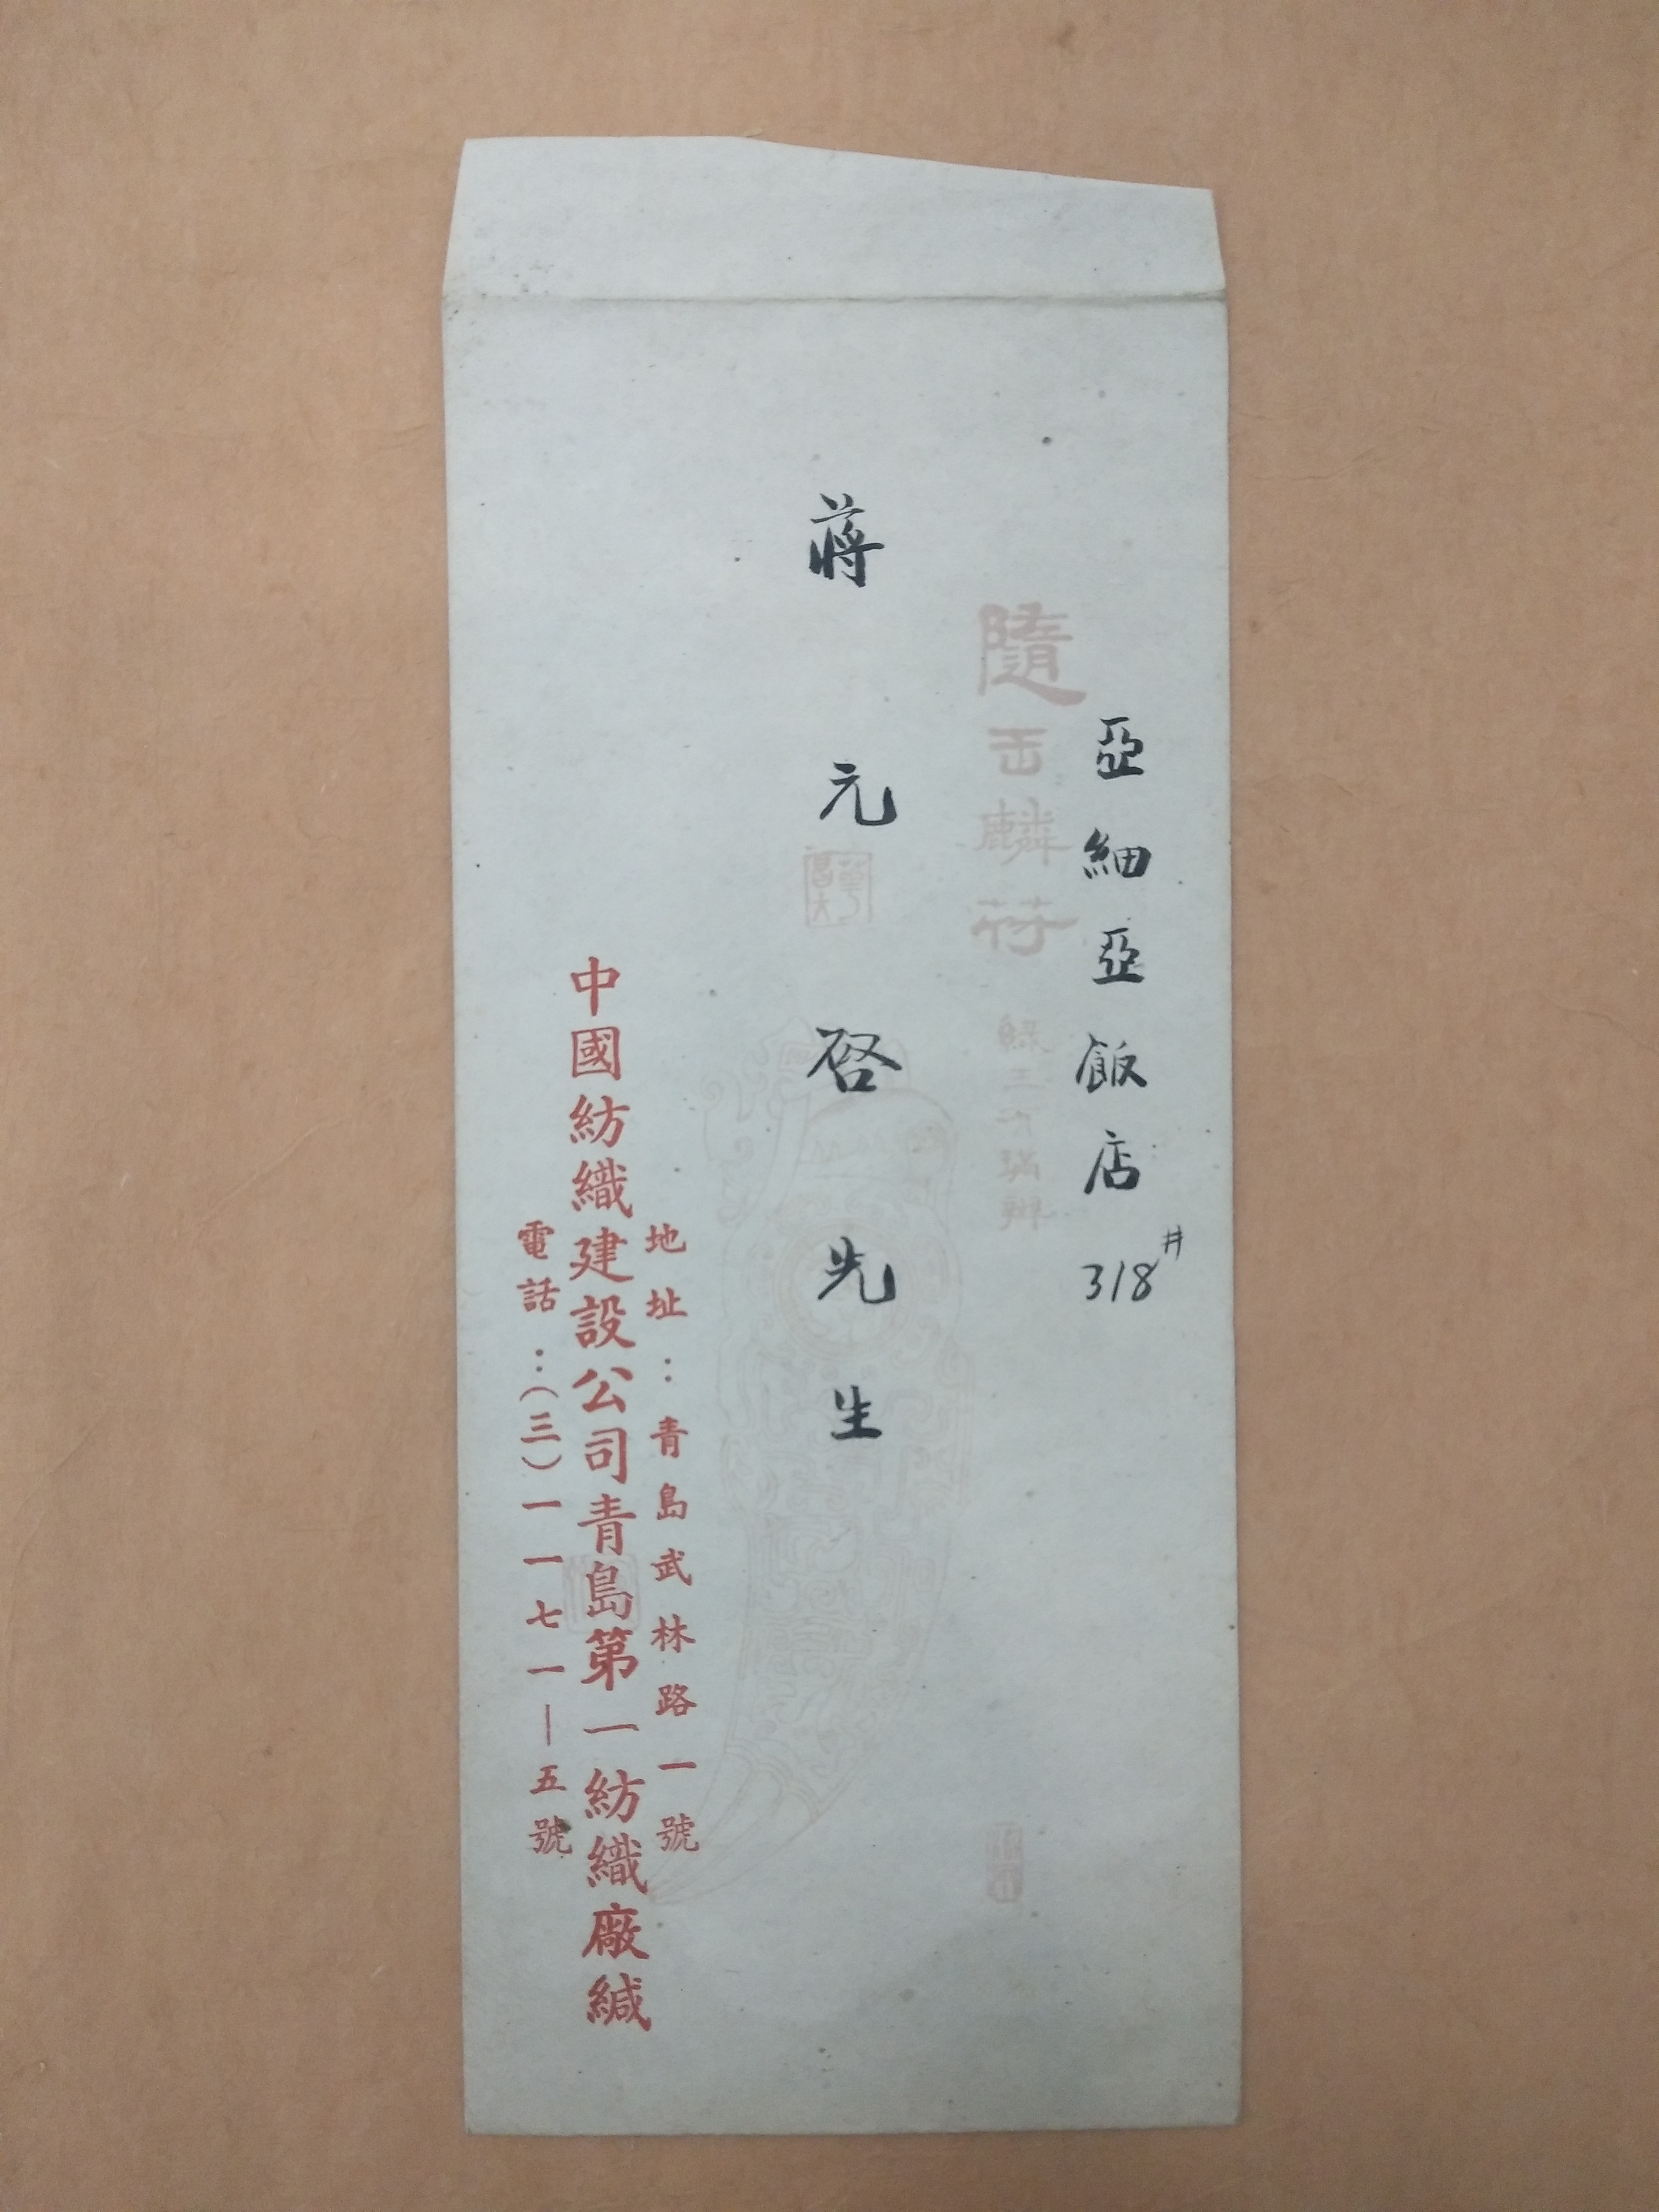 亞細亞飯店318#
隨玉麟符
蔣元啓先生
地址:青島武林路一號
中國紡織建設公司青島第一紡織廠緘
電話:(三)一一七一—五號